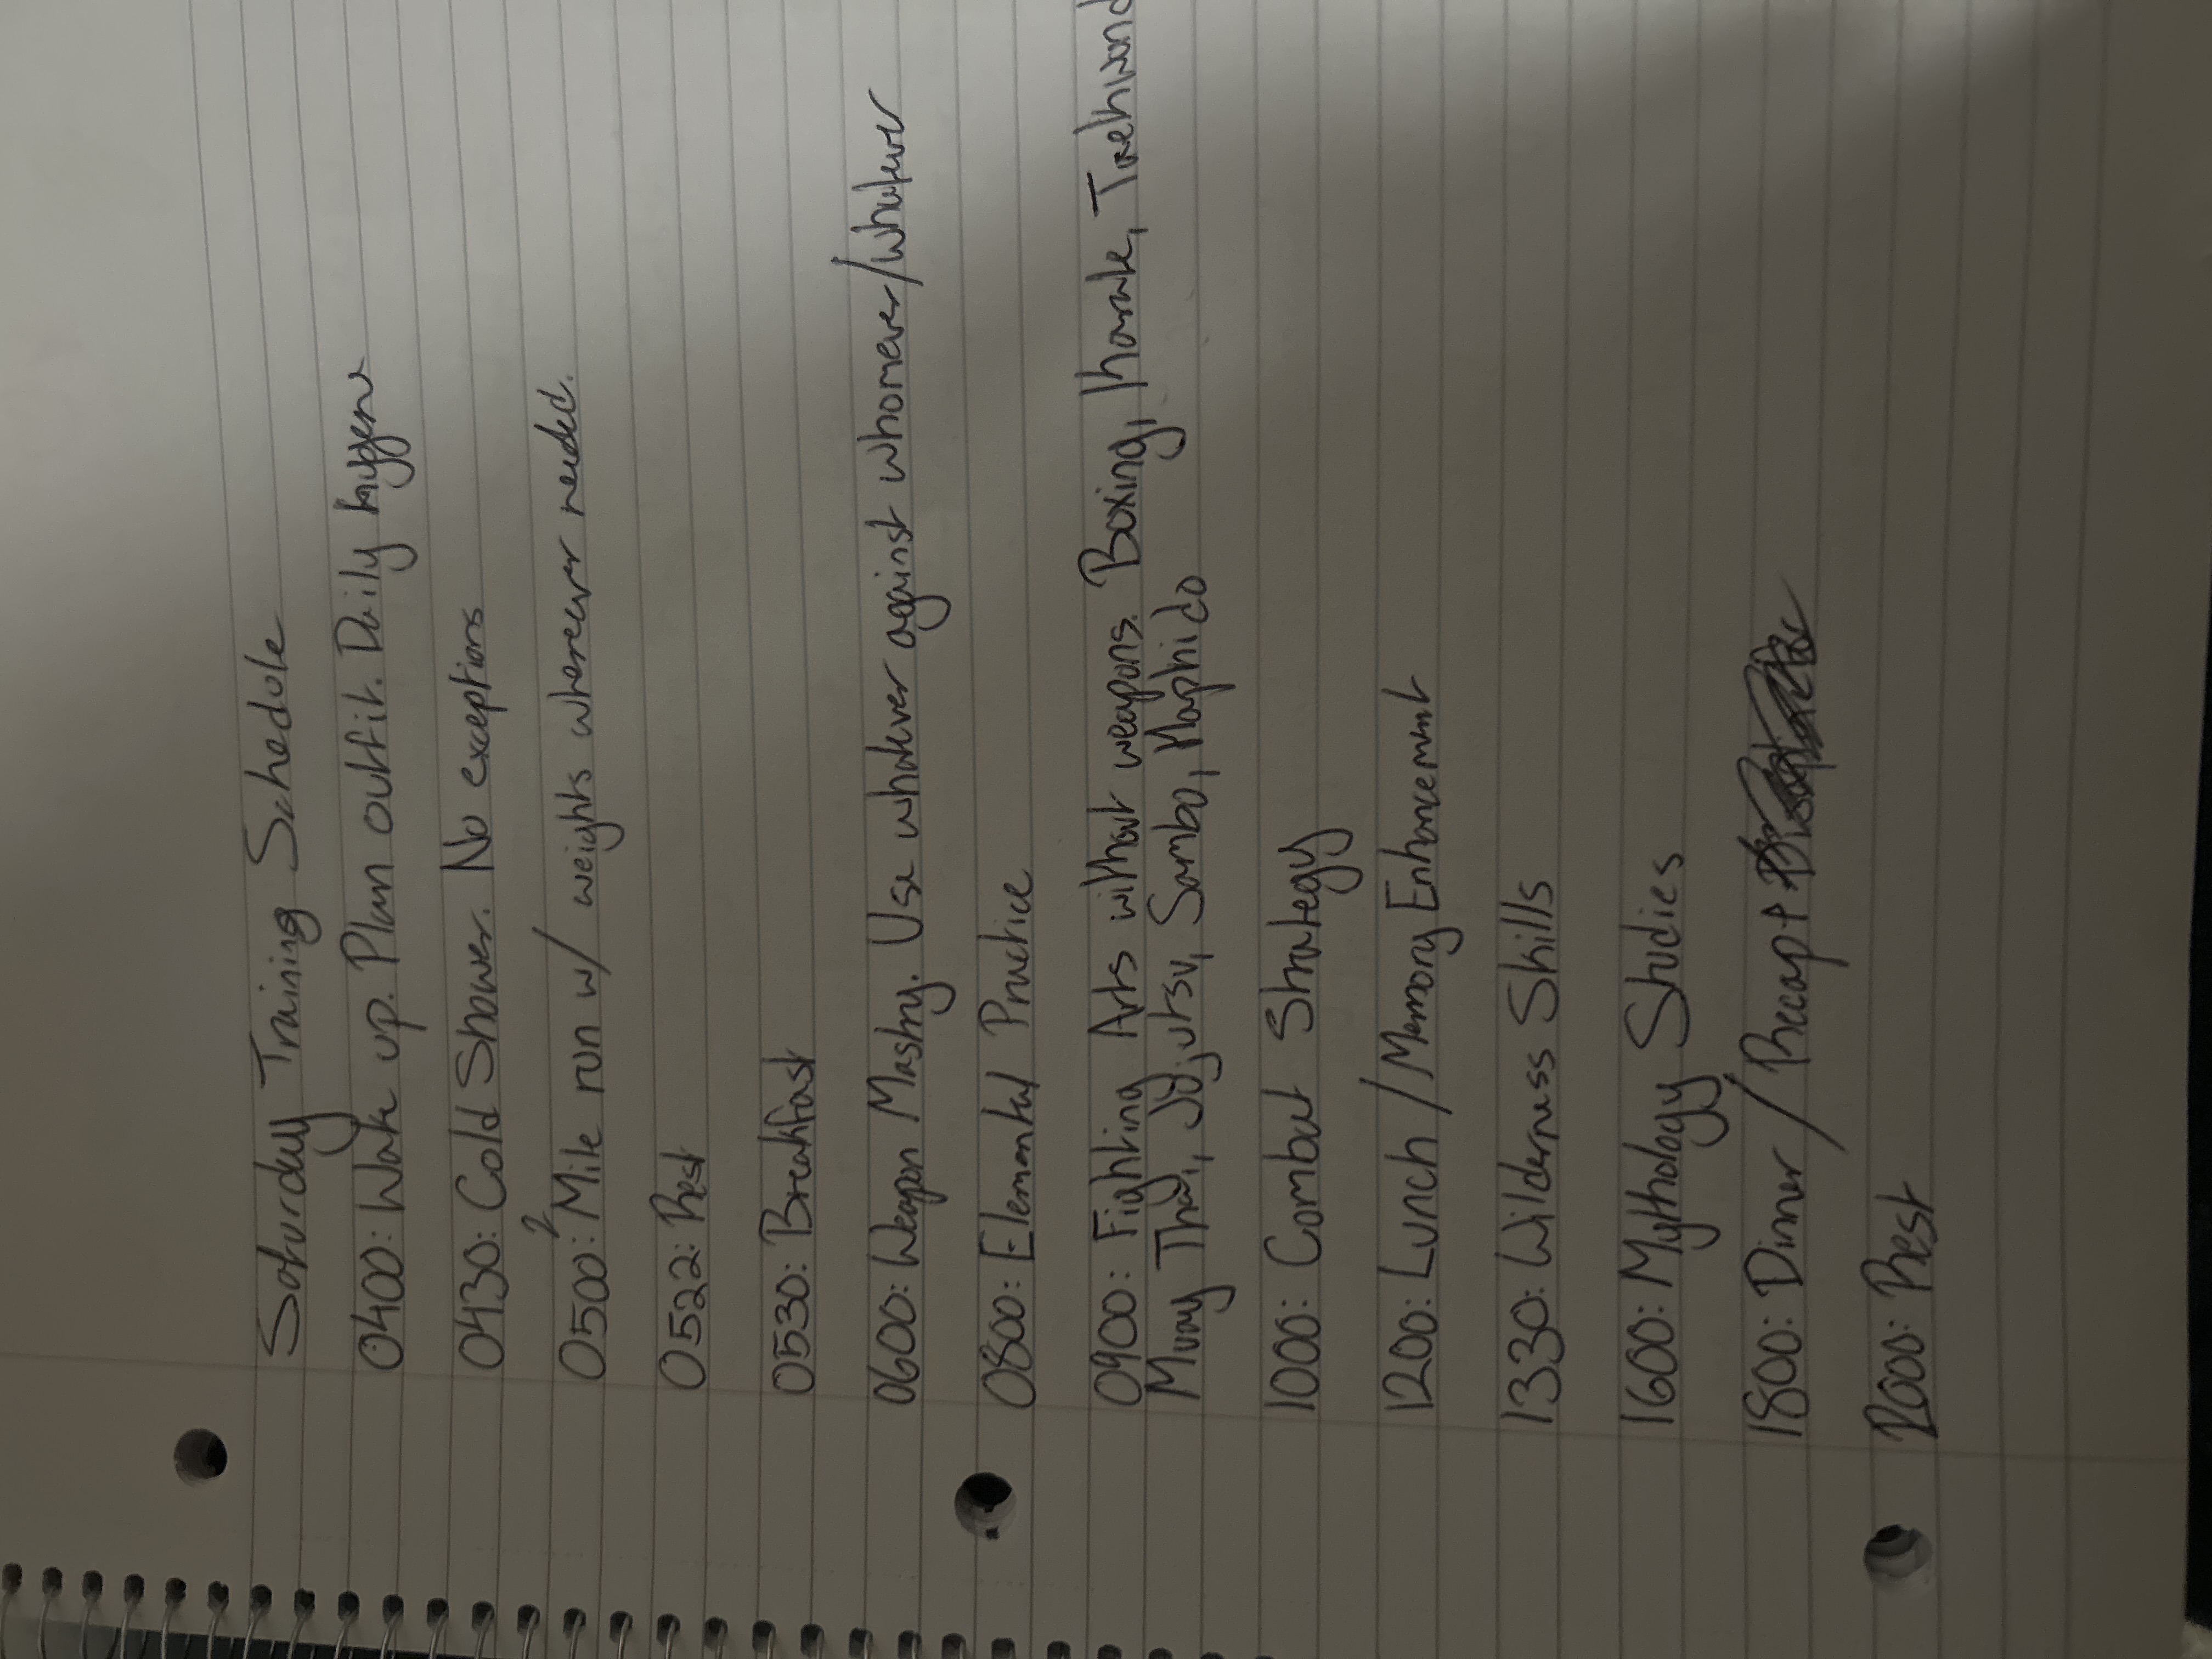 Saturday Training Schedule
0400: Wake up. Plan outfit. Daily hygene
0430: Cold Shower. No exceptions
0500: 2 Mile run w/ weights wherever needed.
0522: Rest
0530: Breakfast
0600: Weapon Mastry. Use whatever against whomever/whatever
0800: Elemental Practice
0900: Fighting Arts without weapons. Boxing, Karate, Taekwond
Muay Thai, Jiujutsu, Sambo, Haphido
1000: Combat Strategy
1200: Lunch / Memory Enhancement
1330: Wilderness Skills
1600: Mythology Studies
1800: Dinner / Recap +
2000: Rest